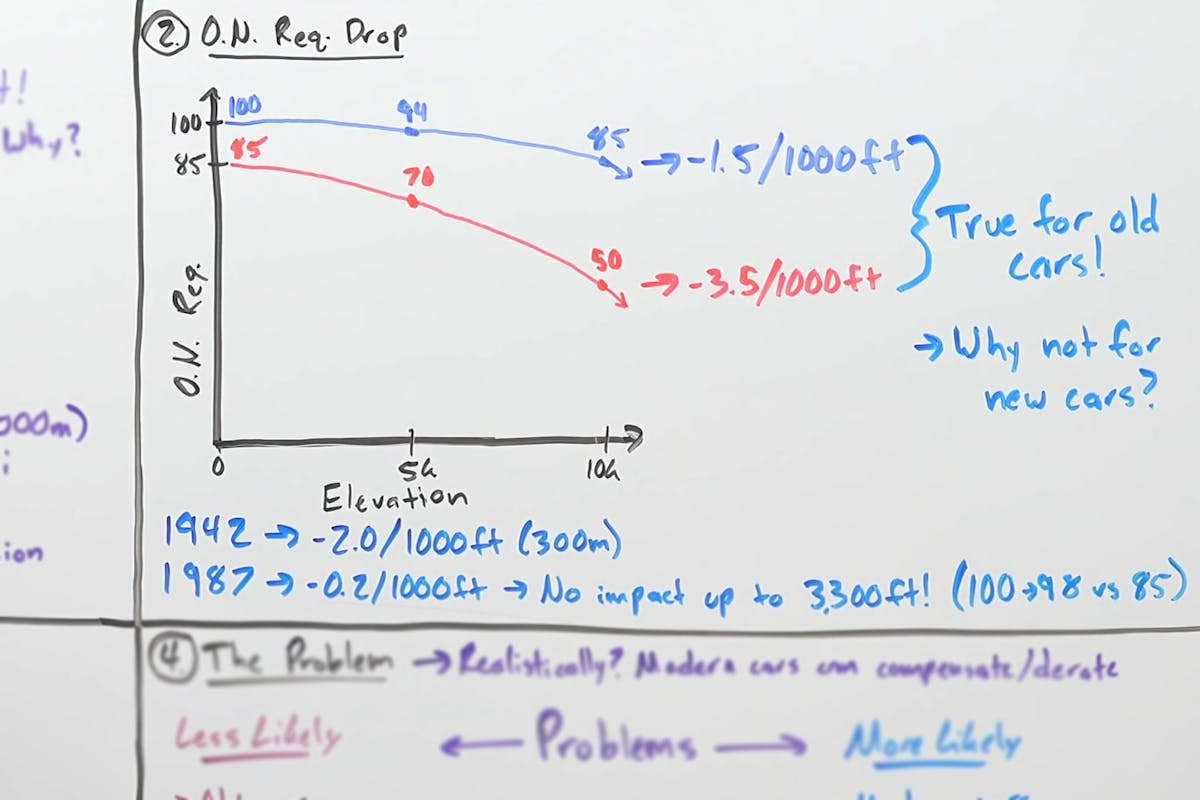 t!
Why?
000m)
i
ion
2. O.N. Req. Drop
100
85
O.N. Req.
100
94
85
→ -1.5/1000ft
85
70
50
→ -3.5/1000ft
True for old
cars!
→ Why not for
new cars?
0
5k
10k
Elevation
1942 → -2.0/1000ft (300m)
1987 → -0.2/1000ft → No impact up to 3,300ft! (100→98 vs 85)
4. The Problem → Realistically? Modern cars can compensate/derate
Less Likely
← Problems →
More Likely